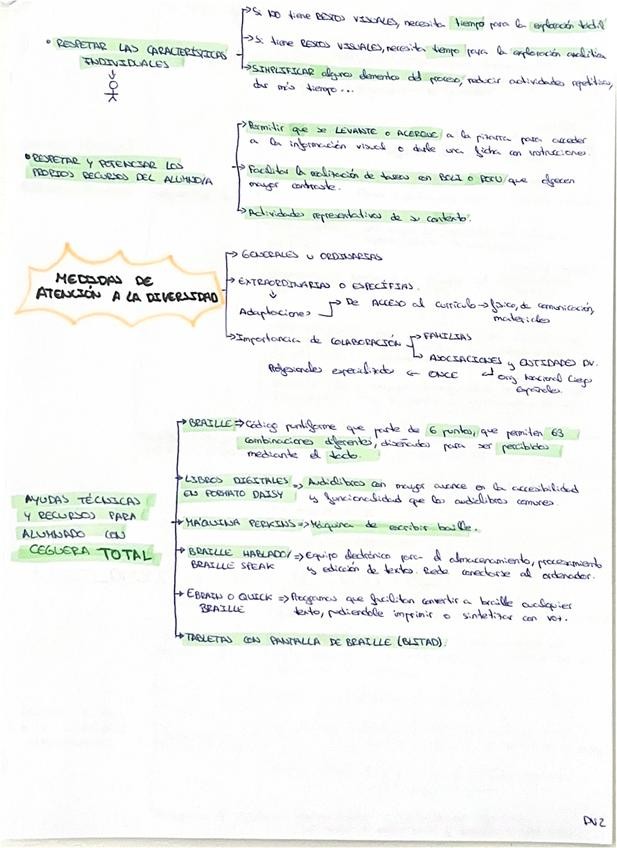 → Si NO tiene RESTOS VISUALES, necesita tiempo para la exploración táctil
→ Si tiene RESTOS VISUALES, necesita tiempo para la exploración analítica
• RESPETAR LAS CARACTERÍSTICAS
INDIVIDUALES
→ SIMPLIFICAR algunos elementos del proceso, reducir actividades repetitivas,
dar más tiempo...
→ Permitir que se LEVANTE o ACERQUE a la pizarra para acceder
a la información visual o darle una ficha con instrucciones.
• RESPETAR Y POTENCIAR LOS
PROPIOS RECURSOS DEL ALUMNO/A
→ Facilitar la realización de tareas con BOLI o ROTU que ofrecen
mayor contraste.
→ Actividades representativas de su contexto.
MEDIDAS DE
ATENCIÓN A LA DIVERSIDAD
→ GENERALES U ORDINARIAS
→ EXTRAORDINARIAS O ESPECÍFIAS.
↓
Adaptaciones → De ACCESO al currículo → físico, de comunicación,
materiales
→ Importancia de COLABORACIÓN → FAMILIAS
→ ASOCIACIONES y ENTIDADES DV.
Profesionales especializados ← ONCE ↵ Org Nacional Ciegos
Españoles.
→ BRAILLE ⇒ Código puntiforme que parte de 6 puntos, que permiten 63
combinaciones diferentes, diseñados para ser percibidos
mediante el tacto.
→ LIBROS DIGITALES ⇒ Audiolibros con mayor avance en la accesibilidad
EN FORMATO DAISY y funcionalidad que los audiolibros comunes
AYUDAS TÉCNICAS
Y RECURSOS PARA
ALUMNADO CON
CEGUERA TOTAL
→ MÁQUINA PERKINS ⇒ Máquina de escribir braille.
→ BRAILLE HABLADO/ ⇒ Equipo electrónico para el almacenamiento, procesamiento
BRAILLE SPEAK y edición de textos. Puede conectarse al ordenador.
→ EBRAIN O QUICK ⇒ Programas que facilitan convertir a braille cualquier
BRAILLE texto, pudiéndole imprimir o sintetizar con voz.
→ TABLETAS CON PANTALLA DE BRAILLE (BLITAD).
DV2